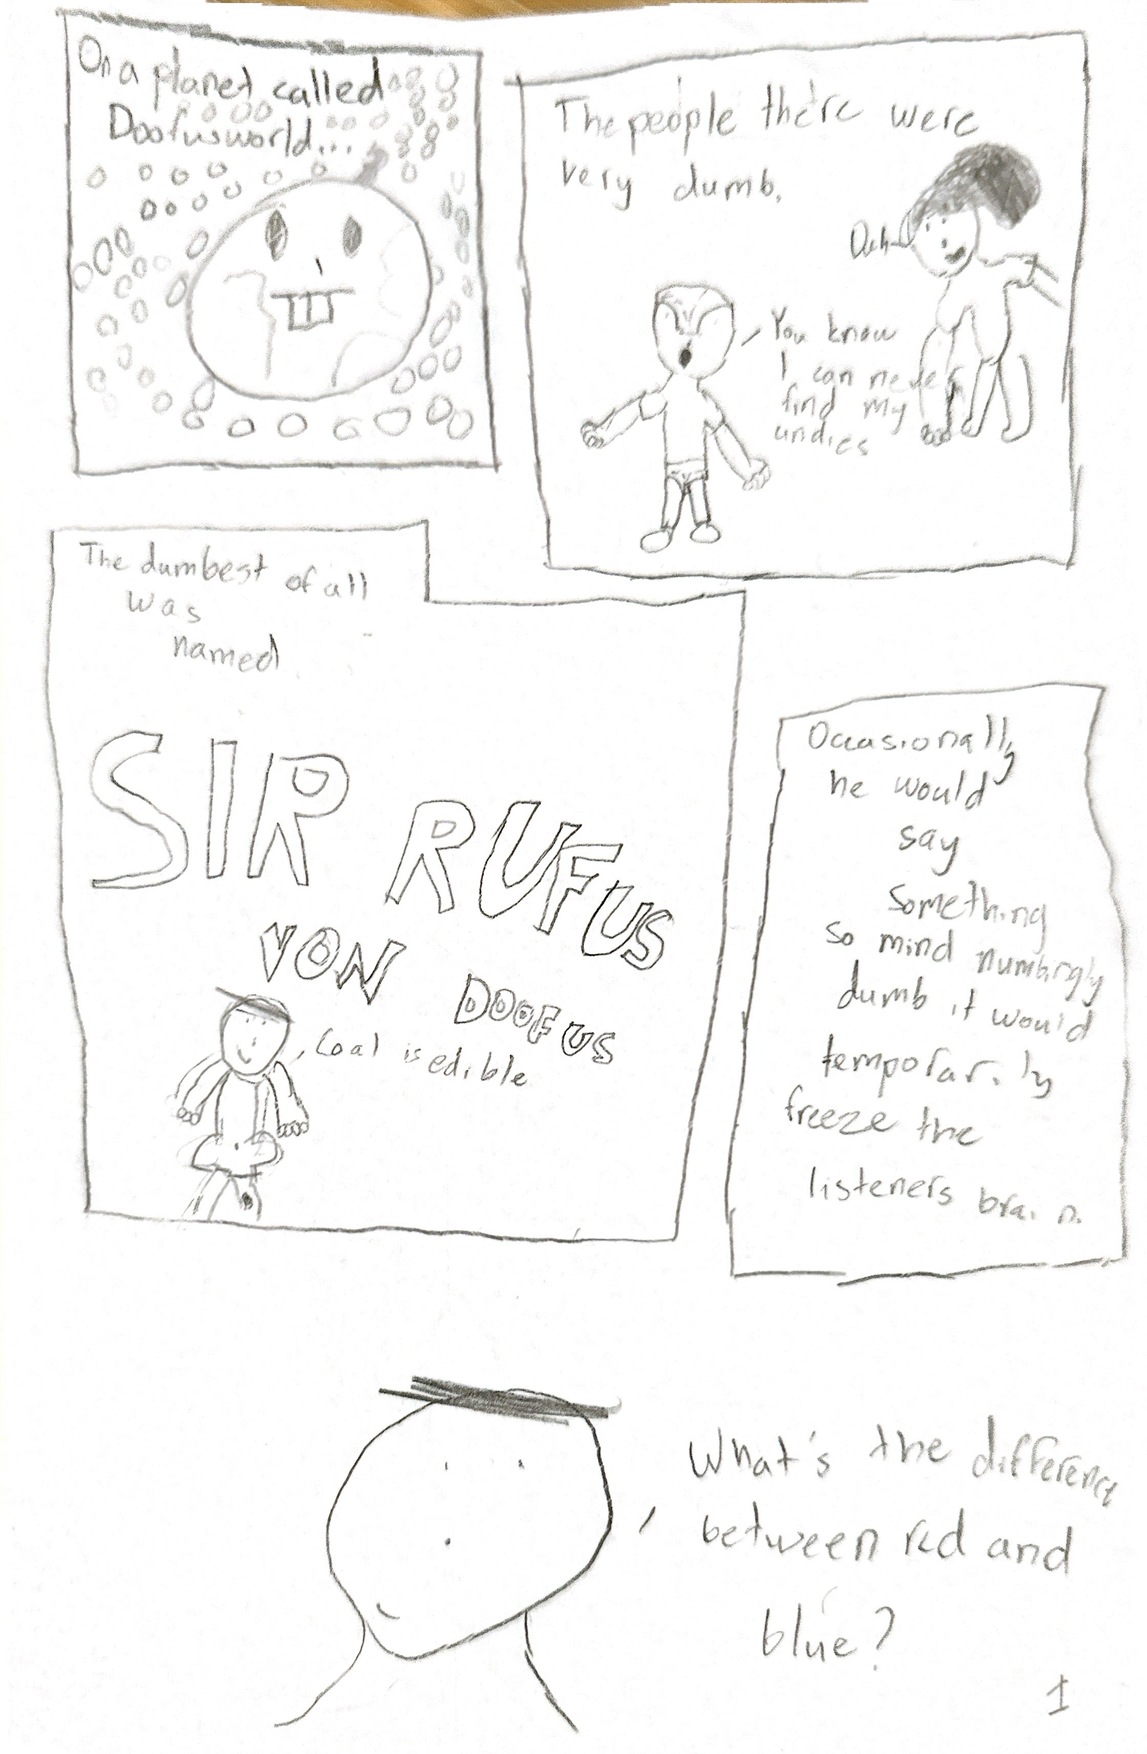 On a planet called
Doofusworld...
The people there were
very dumb.
Duh
You know
I can never
find my
undies
The dumbest of all
was
named
SIR RUFUS
VON DOOFUS
Coal is edible
Occasionally
he would
say
something
so mind numbingly
dumb it would
temporarily
freeze the
listeners brain.
What's the difference
between red and
blue?
1